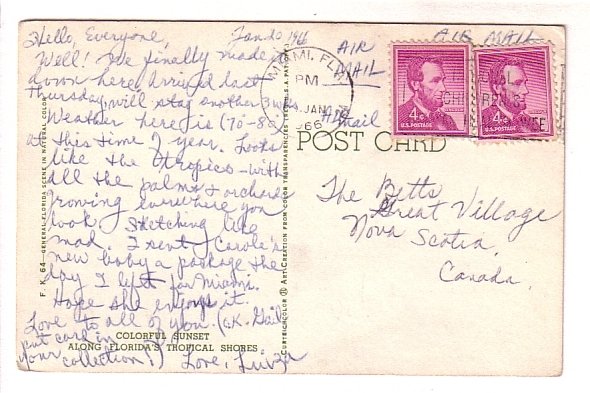 Hello, Everyone, Jan 20 1966
Well! I've finally made it
down here. Arrived last
Thursday, will stay another 3 wks.
Weather here is (70-80)
at this time of year. Looks
like the tropics - with
all the palms & orchards
growing everywhere you
look. Sketching like
mad. I sent Carole's
new baby a package the
day I left for Miami.
Hope she enjoys it.
Love to all of you. (O.K. Gail
put card in
your collection!) Love, Luiza
COLORFUL SUNSET
ALONG FLORIDA'S TROPICAL SHORES
F. K. 64—GENERAL FLORIDA SCENE IN NATURAL COLOR
CURTEICHCOLOR ® ART-CREATION FROM COLOR TRANSPARENCIES (REG. U.S.A. PAT. OFF.)
MIAMI, FLA.
PM
JAN
66
AIR
MAIL
AIR MAIL
Air
mail
4¢
U.S. POSTAGE
4¢
U.S. POSTAGE
POST CARD
The Betts
Great Village
Nova Scotia,
Canada.